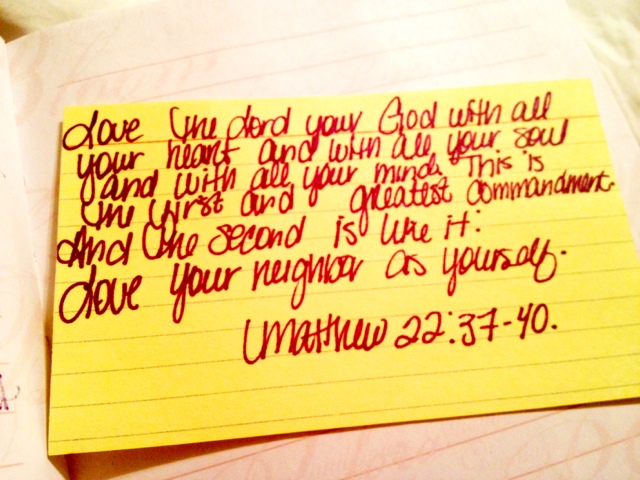 Love the Lord your God with all
your heart and with all your soul
and with all your mind. This is
the first and greatest commandment.
And the second is like it:
Love your neighbor as yourself.
Matthew 22:37-40.